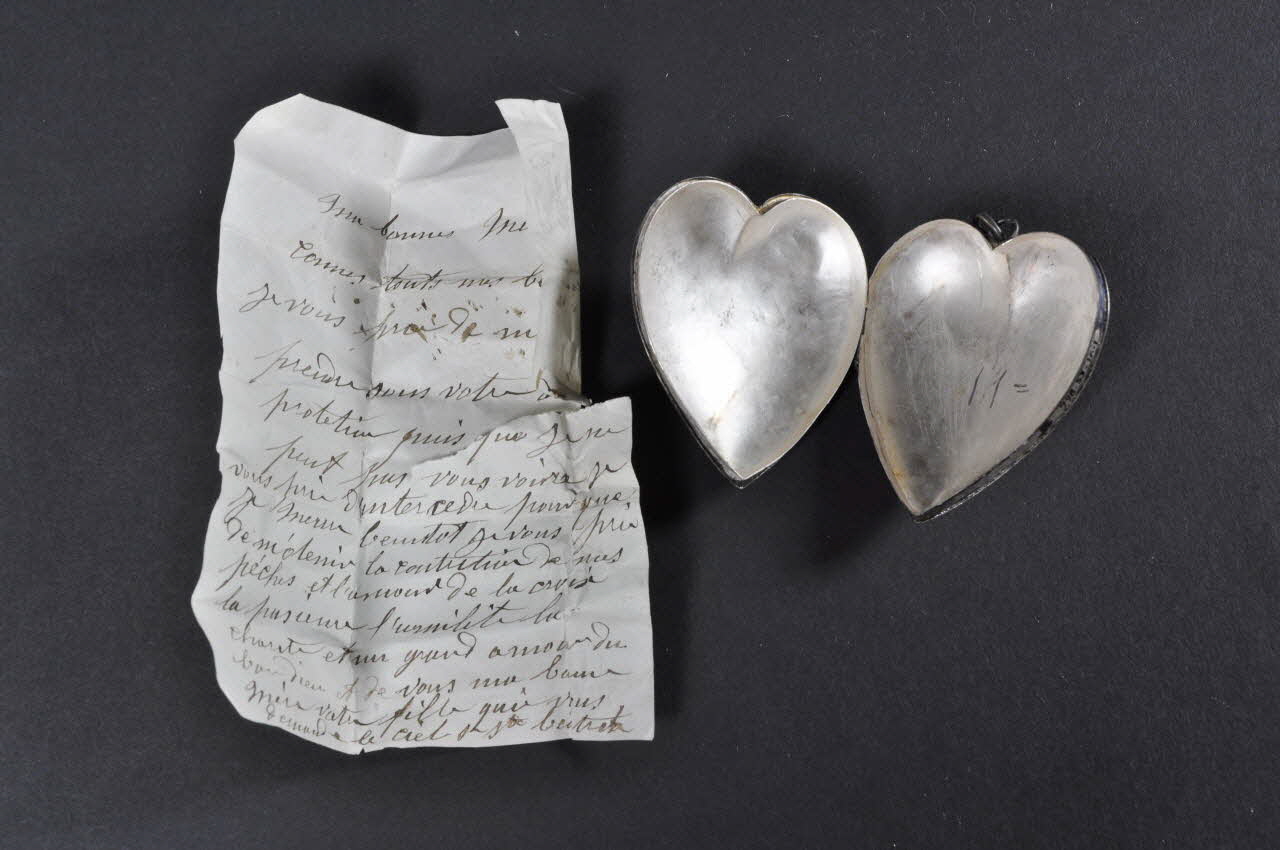 Ma bonnes Me
Connes touts mes b
je vous prie de m
prendre sous votre
protetion puis que je ne
peut pas vous voire je
vous prie d'intercedre pour que
je meure beintot je vous prie
de m'otenir la contrition de mes
péches et l'amour de la croix
la pasience l'umilité la
charite et un grand amour du
bon dieu et de vous ma bonne
Mère votre fille qui vous
demande le ciel Sr Ste
17=